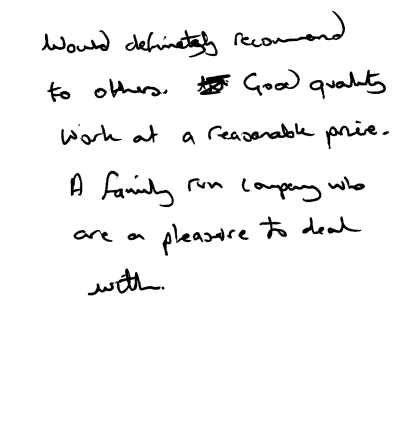 Would definetely recommend
to others. Good quality
work at a reasonable price.
A family run company who
are a pleasure to deal
with.